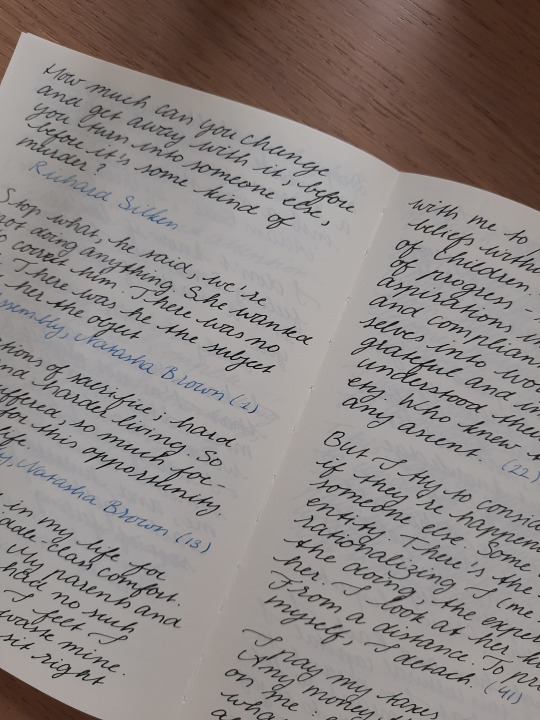 How much can you change
and get away with it, before
you turn into someone else,
before it's some kind of
murder?
Richard Siken
Stop what, he said, we're
not doing anything. She wanted
to correct him. There was no
. There was he the subject
her the object
ssembly, Natasha Brown (1)
tions of sacrifice; hard
nd harder living. So
uffered, so much for-
for this opportunity.
life.
y, Natasha Brown (13)
in my life for
ddle-class comfort.
My parents and
had no such
I feel I
waste mine.
sit right
with me to
beliefs withi
of children.
of progress -
aspirations in
and complian
selves into wo
grateful and in
understood the
ety. Who knew t
any ascent. (22)
But I try to consid
if they're happeni
someone else. Some
entity. There's the
rationalizing I (me
the doing, the exper
her. I look at her k
From a distance. To pr
myself, I detach. (41)
I pay my taxes
Any money
on me:
wha